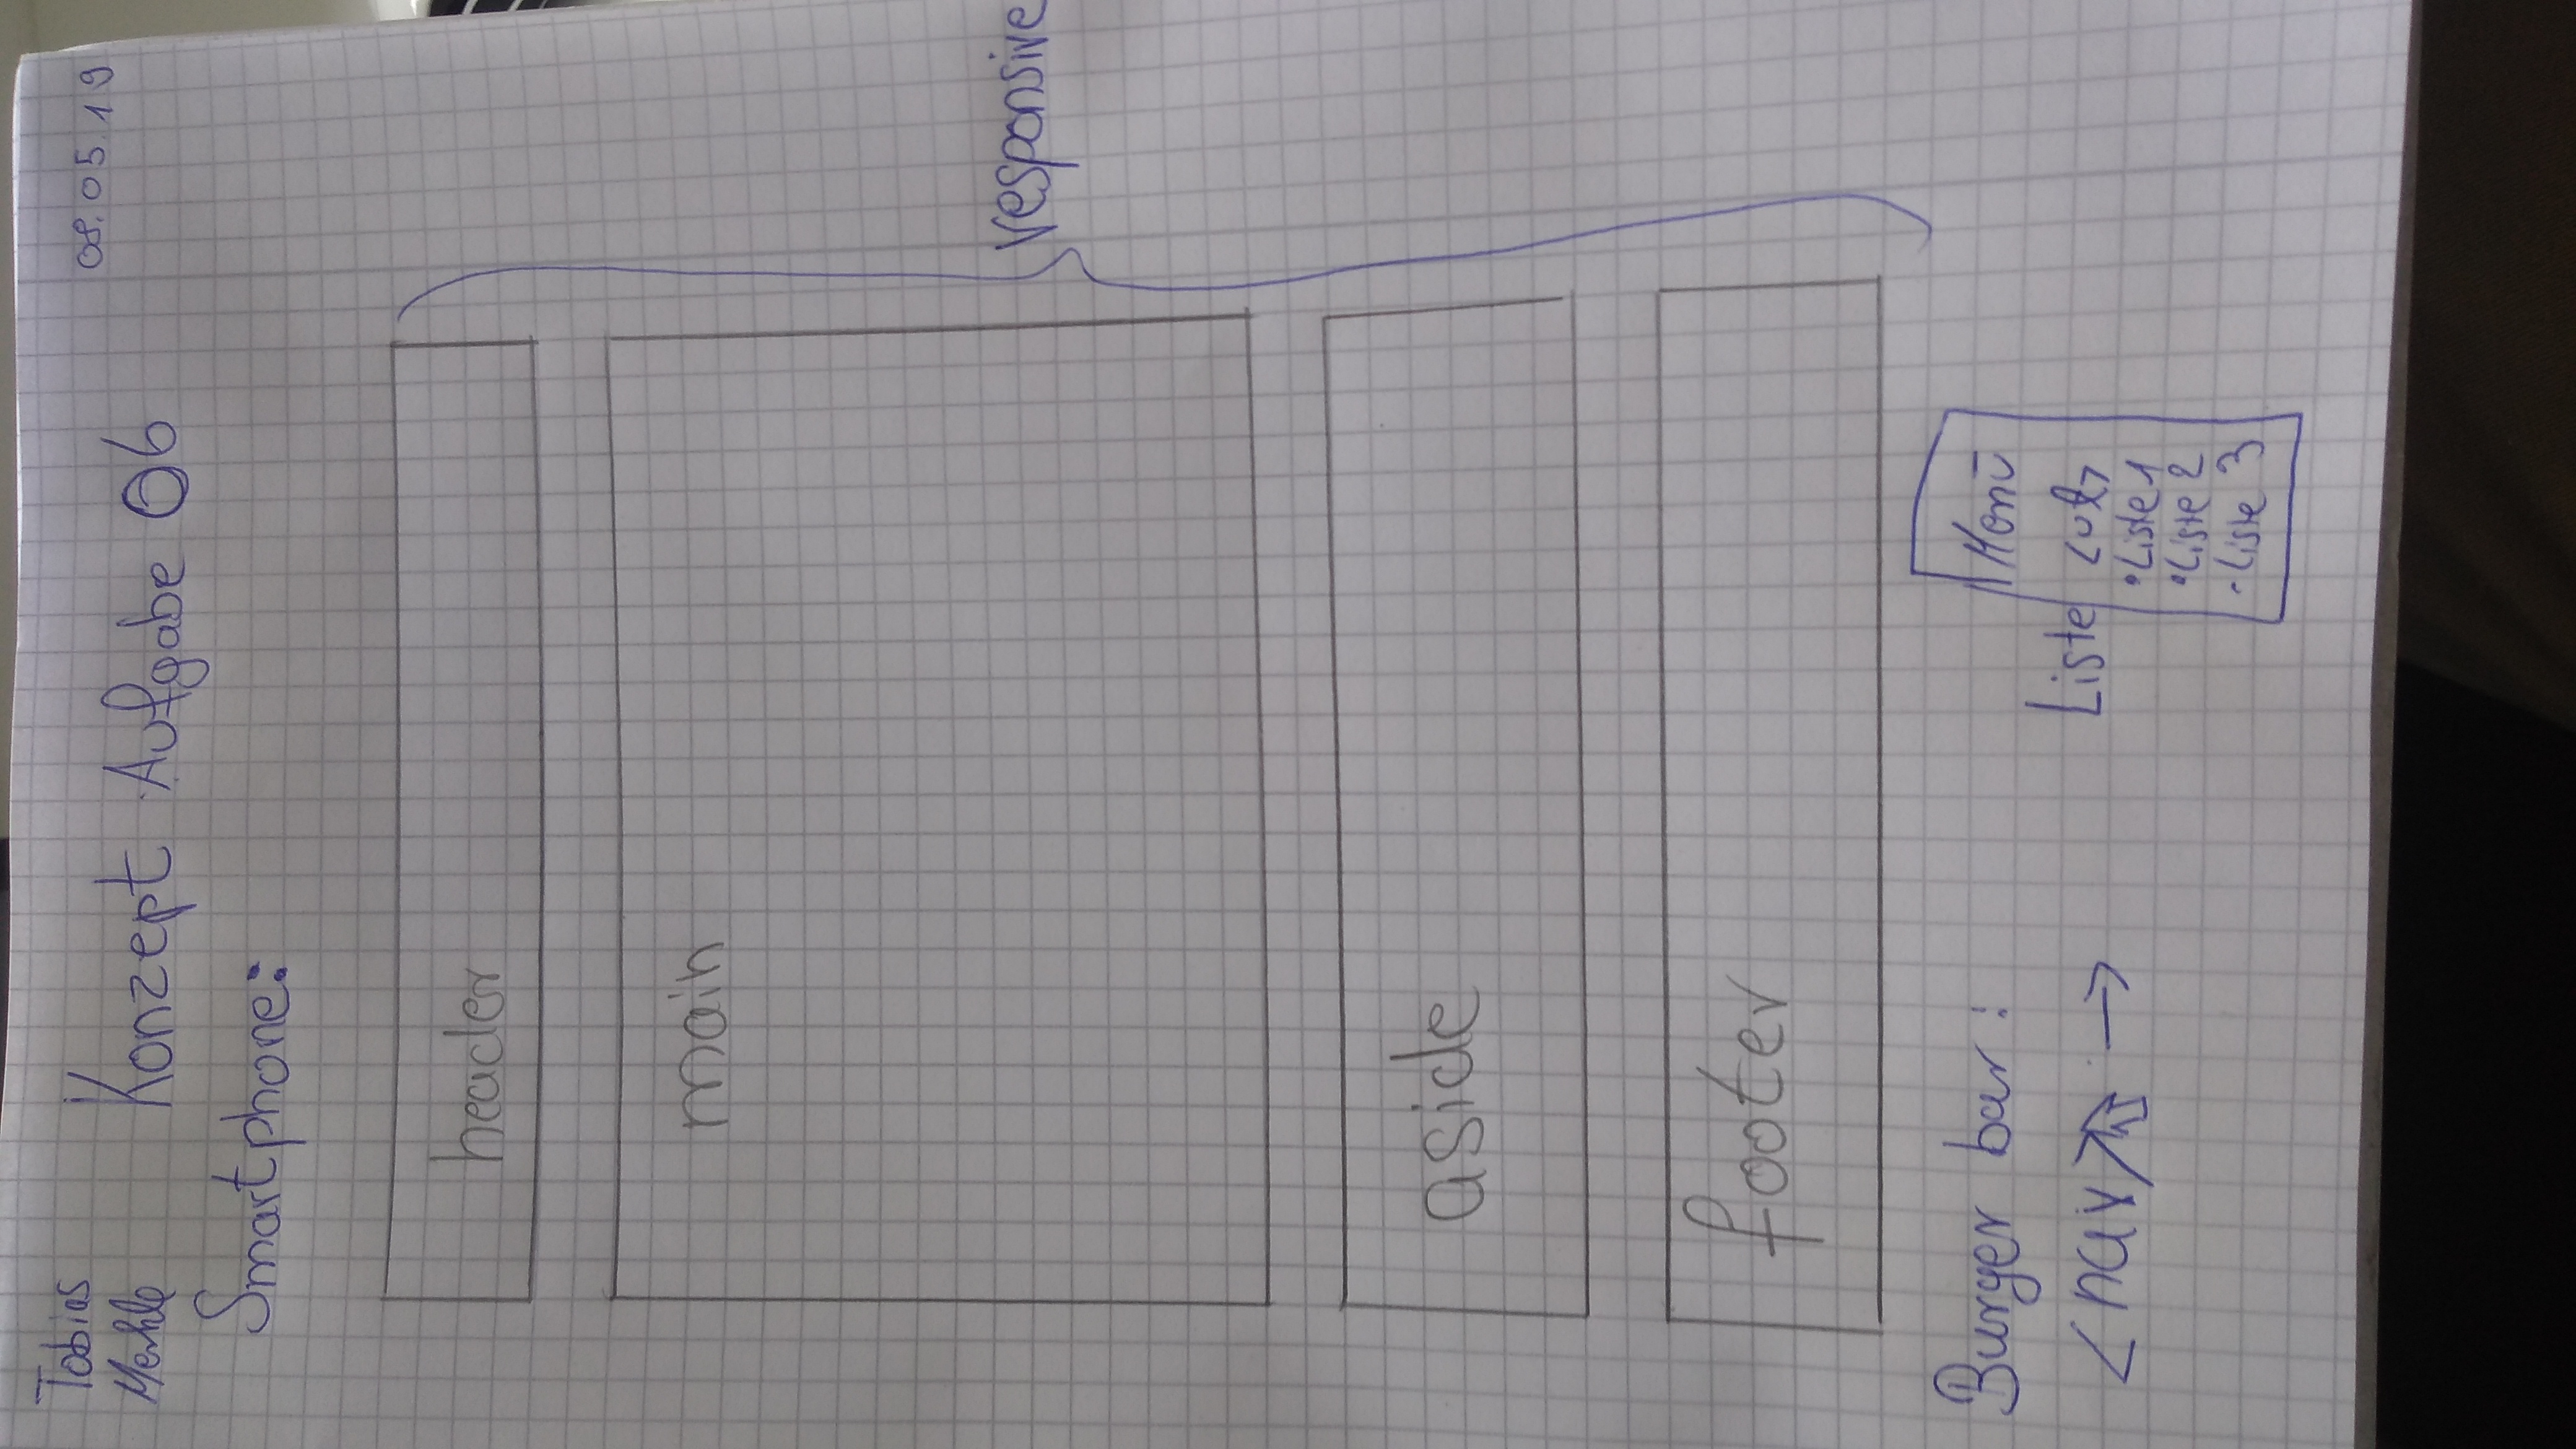 Tobias
Merkle
Konzept Aufgabe 06
08.05.19
Smartphone:
header
main
responsive
aside
footer
Burger bar:
<nav> →
Menü
Liste <ul>
• Liste 1
• Liste 2
- Liste 3